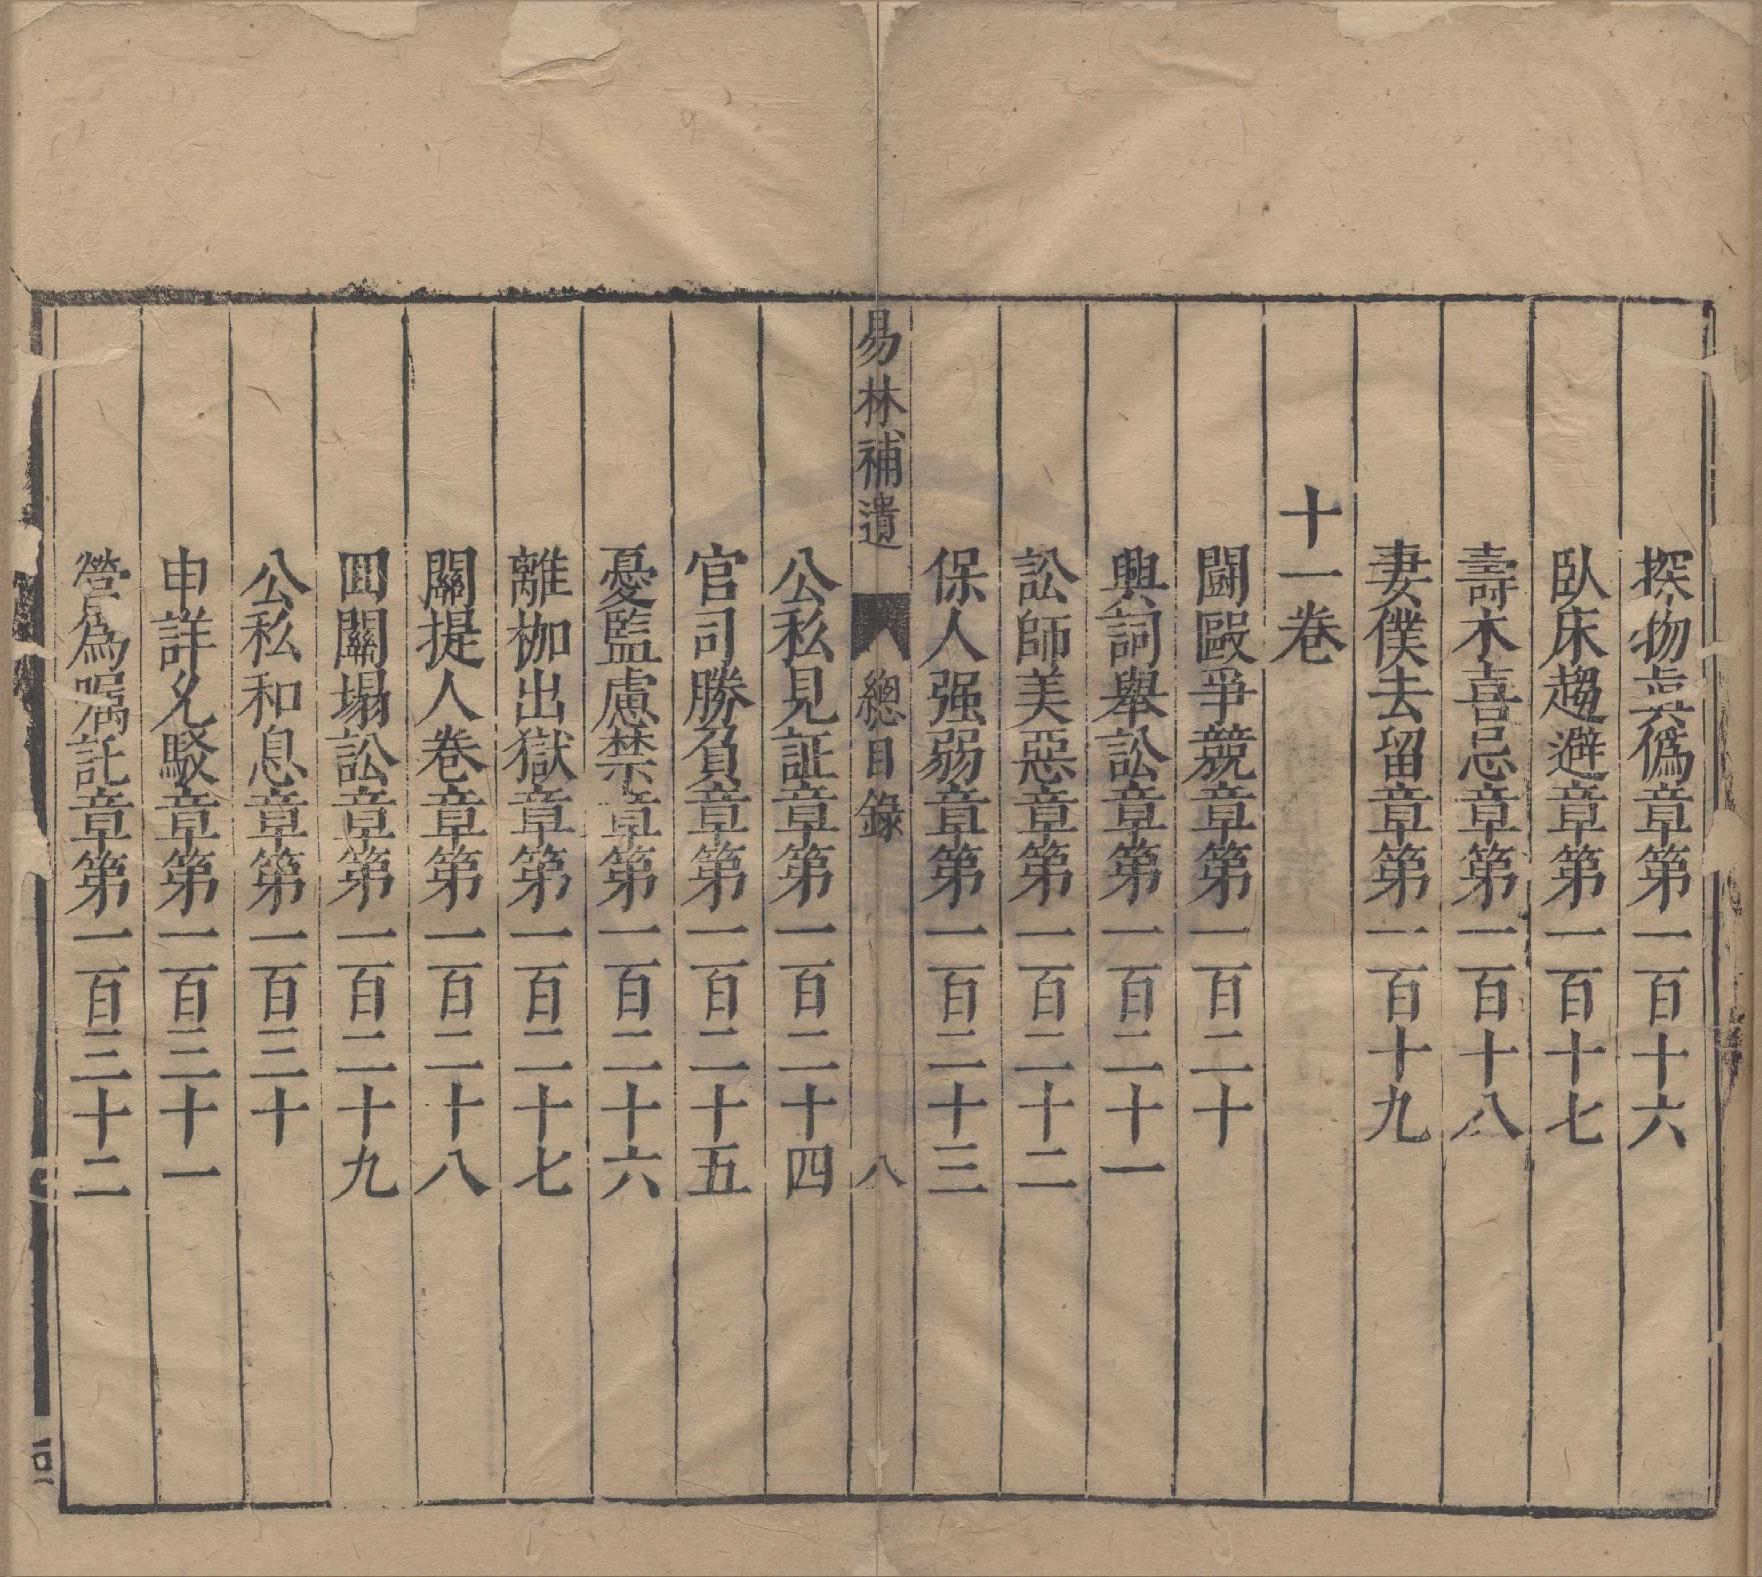 探物真僞章第一百十六
臥床趨避章第一百十七
壽木喜忌章第一百十八
妻僕去留章第一百十九
十一卷
鬪毆爭競章第一百二十
興詞舉訟章第一百二十一
訟師美惡章第一百二十二
保人强弱章第一百二十三
易林補遺 總目錄 八
公私見証章第一百二十四
官司勝負章第一百二十五
憂監慮禁章第一百二十六
離枷出獄章第一百二十七
關提人卷章第一百二十八
回關塌訟章第一百二十九
公私和息章第一百三十
申詳允駁章第一百三十一
營爲囑託章第一百三十二